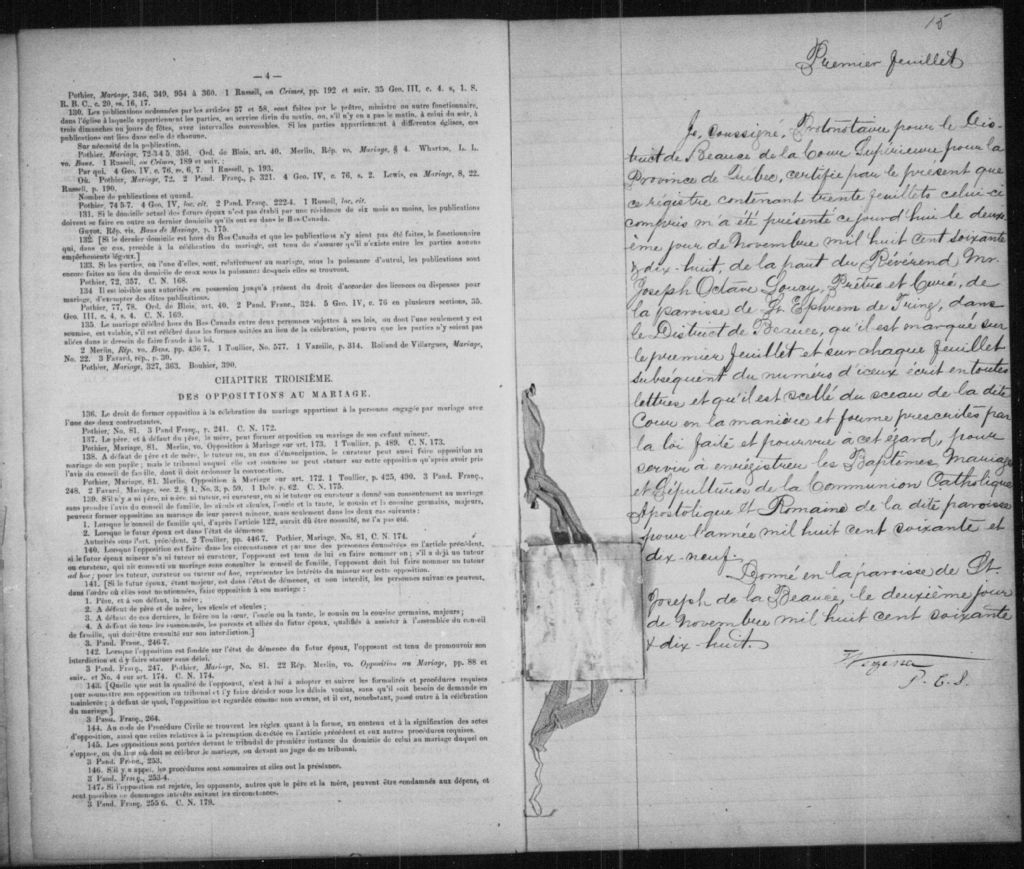 — 4 —
Pothier, Mariage, 346, 349, 954 à 360. 1 Russell, on Crimes, pp. 192 et suiv. 35 Geo. III, c. 4. s, 1. S.
R. B. C., c. 20, ss. 16, 17.
130. Les publications ordonnées par les articles 57 et 58, sont faites par le prêtre, ministre ou autre fonctionnaire,
dans l'église à laquelle appartiennent les parties, au service divin du matin, ou, s'il n'y en a pas le matin, à celui du soir, à
trois dimanches ou jours de fêtes, avec intervalles convenables. Si les parties appartiennent à différentes églises, ces
publications ont lieu dans celle de chacune.
Sur nécessité de la publication.
Pothier, Mariage, 72-3 4 5, 356. Ord. de Blois, art. 40. Merlin, Rép. vo. Mariage, § 4. Wharton, L. L.
vo. Bans. 1 Russell, on Crimes, 189 et suiv. :
Par qui. 4 Geo. IV, c. 76, ss. 6, 7. 1 Russell, p. 193.
Où. Pothier, Mariage, 72. 2 Pand. Franç., p. 321. 4 Geo. IV, c. 76, s. 2. Lewis, on Mariage, 8, 22.
Russell, p. 190.
Nombre de publications et quand.
Pothier, 74 5-7. 4 Geo. IV, loc. cit. 2 Pand. Franç. 222-4. 1 Russell, loc. cit.
131. Si le domicile actuel des futurs époux n'est pas établi par une résidence de six mois au moins, les publications
doivent se faire en outre au dernier domicile qu'ils ont eu dans le Bas-Canada.
Guyot, Rép. vis. Bans de Mariage, p. 175.
132. [Si le dernier domicile est hors du Bas Canada et que les publications n'y aient pas été faites, le fonctionnaire
qui, dans ce cas, procède à la célébration du mariage, est tenu de s'assurer qu'il n'existe entre les parties aucuns
empêchements légaux.]
133. Si les parties, ou l'une d'elles, sont, relativement au mariage, sous la puissance d'autrui, les publications sont
encore faites au lieu du domicile de ceux sous la puissance desquels elles se trouvent.
Pothier, 72, 357. C. N. 168.
134 Il est loisible aux autorités en possession jusqu'à présent du droit d'accorder des licences ou dispenses pour
mariage, d'exempter des dites publications.
Pothier, 77, 78. Ord. de Blois, art. 40. 2 Pand. Franç., 324. 5 Geo. IV, c. 76 en plusieurs sections, 35.
Geo. III, c. 4, s. 4. C. N. 169.
135. Le mariage célébré hors du Bas-Canada entre deux personnes sujettes à ses lois, ou dont l'une seulement y est
soumise, est valable, s'il est célébré dans les formes usitées au lieu de la célébration, pourvu que les parties n'y soient pas
allées dans le dessein de faire fraude à la loi.
2 Merlin, Rép. vo. Bans, pp. 436 7. 1 Toullier, No. 577. 1 Vazeille, p. 314. Rolland de Villargues, Mariage,
No. 22. 3 Favard, rép., p. 30.
Pothier, Mariage, 327, 363. Bouhier, 390.
CHAPITRE TROISIÈME.
DES OPPOSITIONS AU MARIAGE.
136. Le droit de former opposition à la célébration du mariage appartient à la personne engagée par mariage avec
l'une des deux contractantes.
Pothier, No. 81. 3 Pand Franç., r. 241. C. N. 172.
137. Le père, et à défaut du père, la mère, peut former opposition au mariage de son enfant mineur.
Pothier, Mariage, 81. Merlin, vo. Opposition à Mariage sur art. 173. 1 Toullier, p. 489. C. N. 173.
138. A défaut de père et de mère, le tuteur ou, au cas d'émancipation, le curateur peut aussi faire opposition au
mariage de son pupile ; mais le tribunal auquel elle est soumise ne peut statuer sur cette opposition qu'après avoir pris
l'avis du conseil de famille, dont il doit ordonner la convocation.
Pothier, Mariage, 81. Merlin, Opposition à Mariage sur art. 172. 1 Toullier, p. 425, 490. 3 Pand. Franç.,
248. 2 Favard, Mariage, sec. 2, § 1, No. 3, p. 59. 1 Delv. p. 62. C. N. 175.
139. S'il n'y a ni père, ni mère, ni tuteur, ni curateur, ou si le tuteur ou curateur a donné son consentement au mariage
sans prendre l'avis du conseil de famille, les aïeuls et aïeules, l'oncle et la tante, le cousin et la cousine germains, majeurs,
peuvent former opposition au mariage de leur parent mineur, mais seulement dans les deux cas suivants :
1. Lorsque le conseil de famille qui, d'après l'article 122, aurait dû être consulté, ne l'a pas été.
2. Lorsque le futur époux est dans l'état de démence.
Autorités sous l'art. précédent. 2 Toullier, pp. 446 7. Pothier, Mariage, No. 81, C. N. 174.
140. Lorsque l'opposition est faite dans les circonstances et par une des personnes énumérées en l'article précédent,
si le futur époux mineur n'a ni tuteur ni curateur, l'opposant est tenu de lui en faire nommer un ; s'il a déjà un tuteur
ou curateur, qui ait consenti au mariage sans consulter le conseil de famille, l'opposant doit lui faire nommer un tuteur
ad hoc ; pour les tuteur, curateur ou tuteur ad hoc, représenter les intérêts du mineur sur cette opposition.
141. [Si le futur époux, étant majeur, est dans l'état de démence, et non interdit, les personnes suivantes peuvent,
dans l'ordre où elles sont mentionnées, faire opposition à son mariage :
1. Père, et à son défaut, la mère ;
2. A défaut de père et de mère, les aïeuls et aïeules ;
3. A défaut de ces derniers, le frère ou la sœur, l'oncle ou la tante, le cousin ou la cousine germains, majeurs ;
4. A défaut de tous les susnommés, les parents et alliés du futur époux, qualifiés à assister à l'assemblée du conseil
de famille, qui doit être consulté sur son interdiction.]
3. Pand. Franç., 246-7.
142. Lorsque l'opposition est fondée sur l'état de démence du futur époux, l'opposant est tenu de promouvoir son
interdiction et d'y faire statuer sans délai.
3 Pand. Franç., 247. Pothier, Mariage, No. 81. 22 Rép. Merlin, vo. Opposition au Mariage, pp. 88 et
suiv. et No. 4 sur art. 174. C. N. 174.
143. [Quelle que soit la qualité de l'opposant, c'est à lui à adopter et suivre les formalités et procédures requises
pour soumettre son opposition au tribunal et l'y faire décider sous les délais voulus, sans qu'il soit besoin de demande en
mainlevée ; à défaut de quoi, l'opposition est regardée comme non avenue, et il est, nonobstant, passé outre à la célébration
du mariage.]
3 Pand. Franç., 264.
144. Au code de Procédure Civile se trouvent les règles quant à la forme, au contenu et à la signification des actes
d'opposition, ainsi que celles relatives à la péremption décrétée en l'article précédent et aux autres procédures requises.
145. Les oppositions sont portées devant le tribunal de première instance du domicile de celui au mariage duquel on
s'oppose, ou du lieu où doit se célébrer le mariage, ou devant un juge de ce tribunal.
3 Pand. Franç., 253.
146. S'il y a appel, les procédures sont sommaires et elles ont la préséance.
3 Pand. Franç., 253-4.
147. Si l'opposition est rejetée, les opposants, autres que le père et la mère, peuvent être condamnés aux dépens, et
sont passibles de dommages intérêts suivant les circonstances.
3 Pand. Franç. 255 6. C. N. 179.
15
Premier feuillet
Je, soussigné, Protonotaire pour le Dis-
trict de Beauce de la Cour Supérieure pour la
Province de Québec, certifie par le présent que
ce registre contenant trente feuillets celui-ci
compris m'a été présenté ce jourd'hui le deux-
ième jour de Novembre mil huit cent soixante
& dix-huit, de la part du Révérend Mr.
Joseph Octave Soucy, Prêtre et Curé, de
la paroisse de St. Ephrem de Tring, dans
le District de Beauce, qu'il est marqué sur
le premier feuillet et sur chaque feuillet
subséquent du numéro d'iceux écrit en toutes
lettres et qu'il est scellé du sceau de la dite
Cour en la manière et forme prescrites par
la loi faite et pourvue à cet égard, pour
servir à enrégistrer les Baptêmes, Mariages
et Sépultures de la Communion Catholique
Apostolique et Romaine de la dite paroisse
pour l'année mil huit cent soixante et
dix-neuf.
Donné en la paroisse de St.
Joseph de la Beauce, le deuxième jour
de Novembre mil huit cent soixante
& dix-huit.
Vézina
P. C. S.